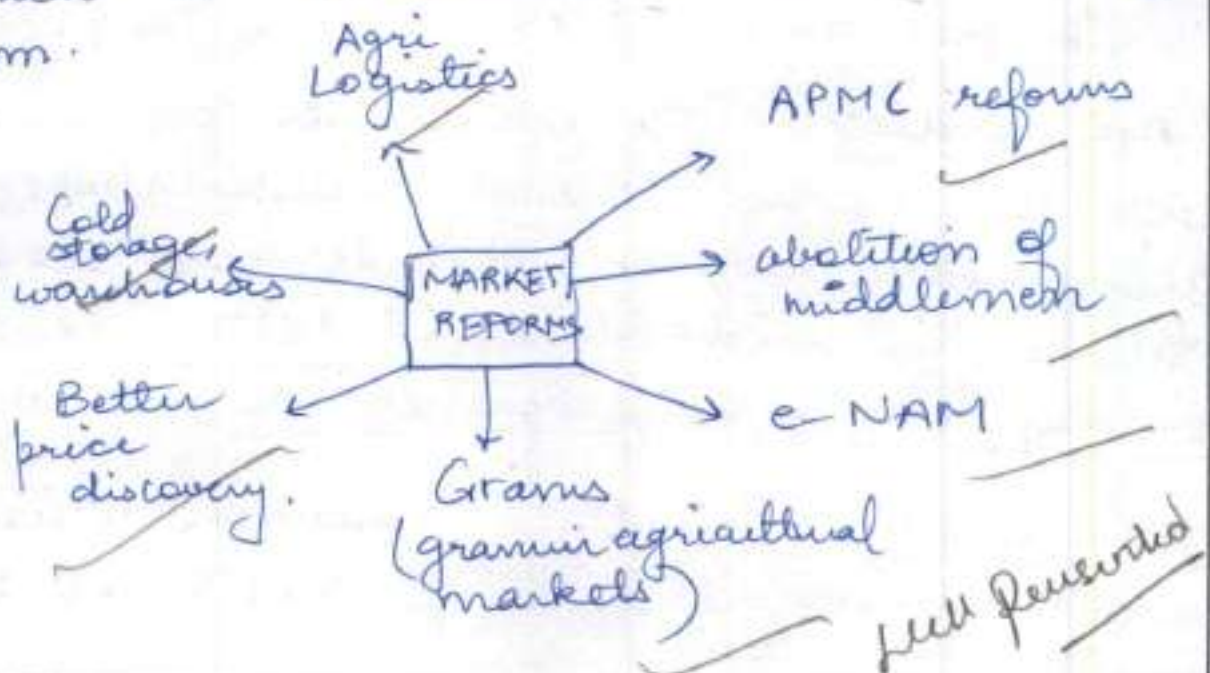 m.
Agri
Logistics
APMC reforms
Cold
storage,
warehouses
MARKET
REFORMS
abolition of
middlemen
Better
price
discovery.
e-NAM
Grams
(gramin agricultural
markets)
Well